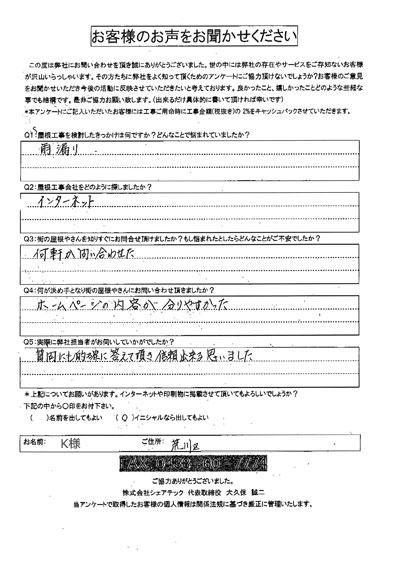 お客様のお声をお聞かせください
この度は弊社にお問い合わせを頂き誠にありがとうございました。世の中には弊社の存在やサービスをご存知ないお客様
が沢山いらっしゃいます。その方たちに弊社をよく知って頂くためのアンケートにご協力頂けないでしょうか?お客様のご意見
をお聞かせいただき今後の活動に反映させていただきたいと考えております。良かったこと、嬉しかったことどのような些細な
事でも結構です。是非ご協力お願い致します。(出来るだけ具体的に書いて頂ければ幸いです)
*本アンケートにご記入いただいたお客様には工事ご用命時に工事金額(税抜き)の2%をキャッシュバックさせていただきます。
Q1:屋根工事を検討したきっかけは何ですか?どんなことで悩まれていましたか?
雨漏り
Q2:屋根工事会社をどのように探しましたか?
インターネット
Q3:街の屋根やさんを知りすぐにお問合せ頂けましたか?もし悩まれたとしたらどんなことがご不安でしたか?
何軒か問い合わせた
Q4:何が決め手となり街の屋根やさんにお問い合わせ頂きましたか?
ホームページの内容が分りやすかった
Q5:実際に弊社担当者がお伺いしていかがでしたか?
質問にも的確に答えて頂き依頼出来ると思いました
*上記についてお願いがあります。インターネットや印刷物に掲載させて頂いてもよろしいでしょうか?
下記の中から○印をお付下さい。
( )名前を出してもよい (○)イニシャルなら出してもよい
お名前: K様 ご住所: 荒川区
ご協力ありがとうございました。
株式会社シェアテック 代表取締役 大久保 誠二
当アンケートで取得したお客様の個人情報は関係法規に基づき厳正に管理いたします。